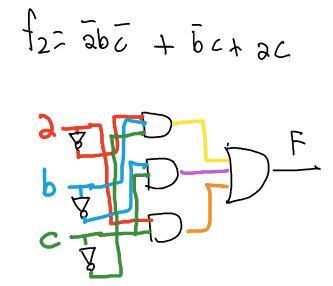 f₂ = a̅bc̅ + b̅c + ac
a
b
c
F